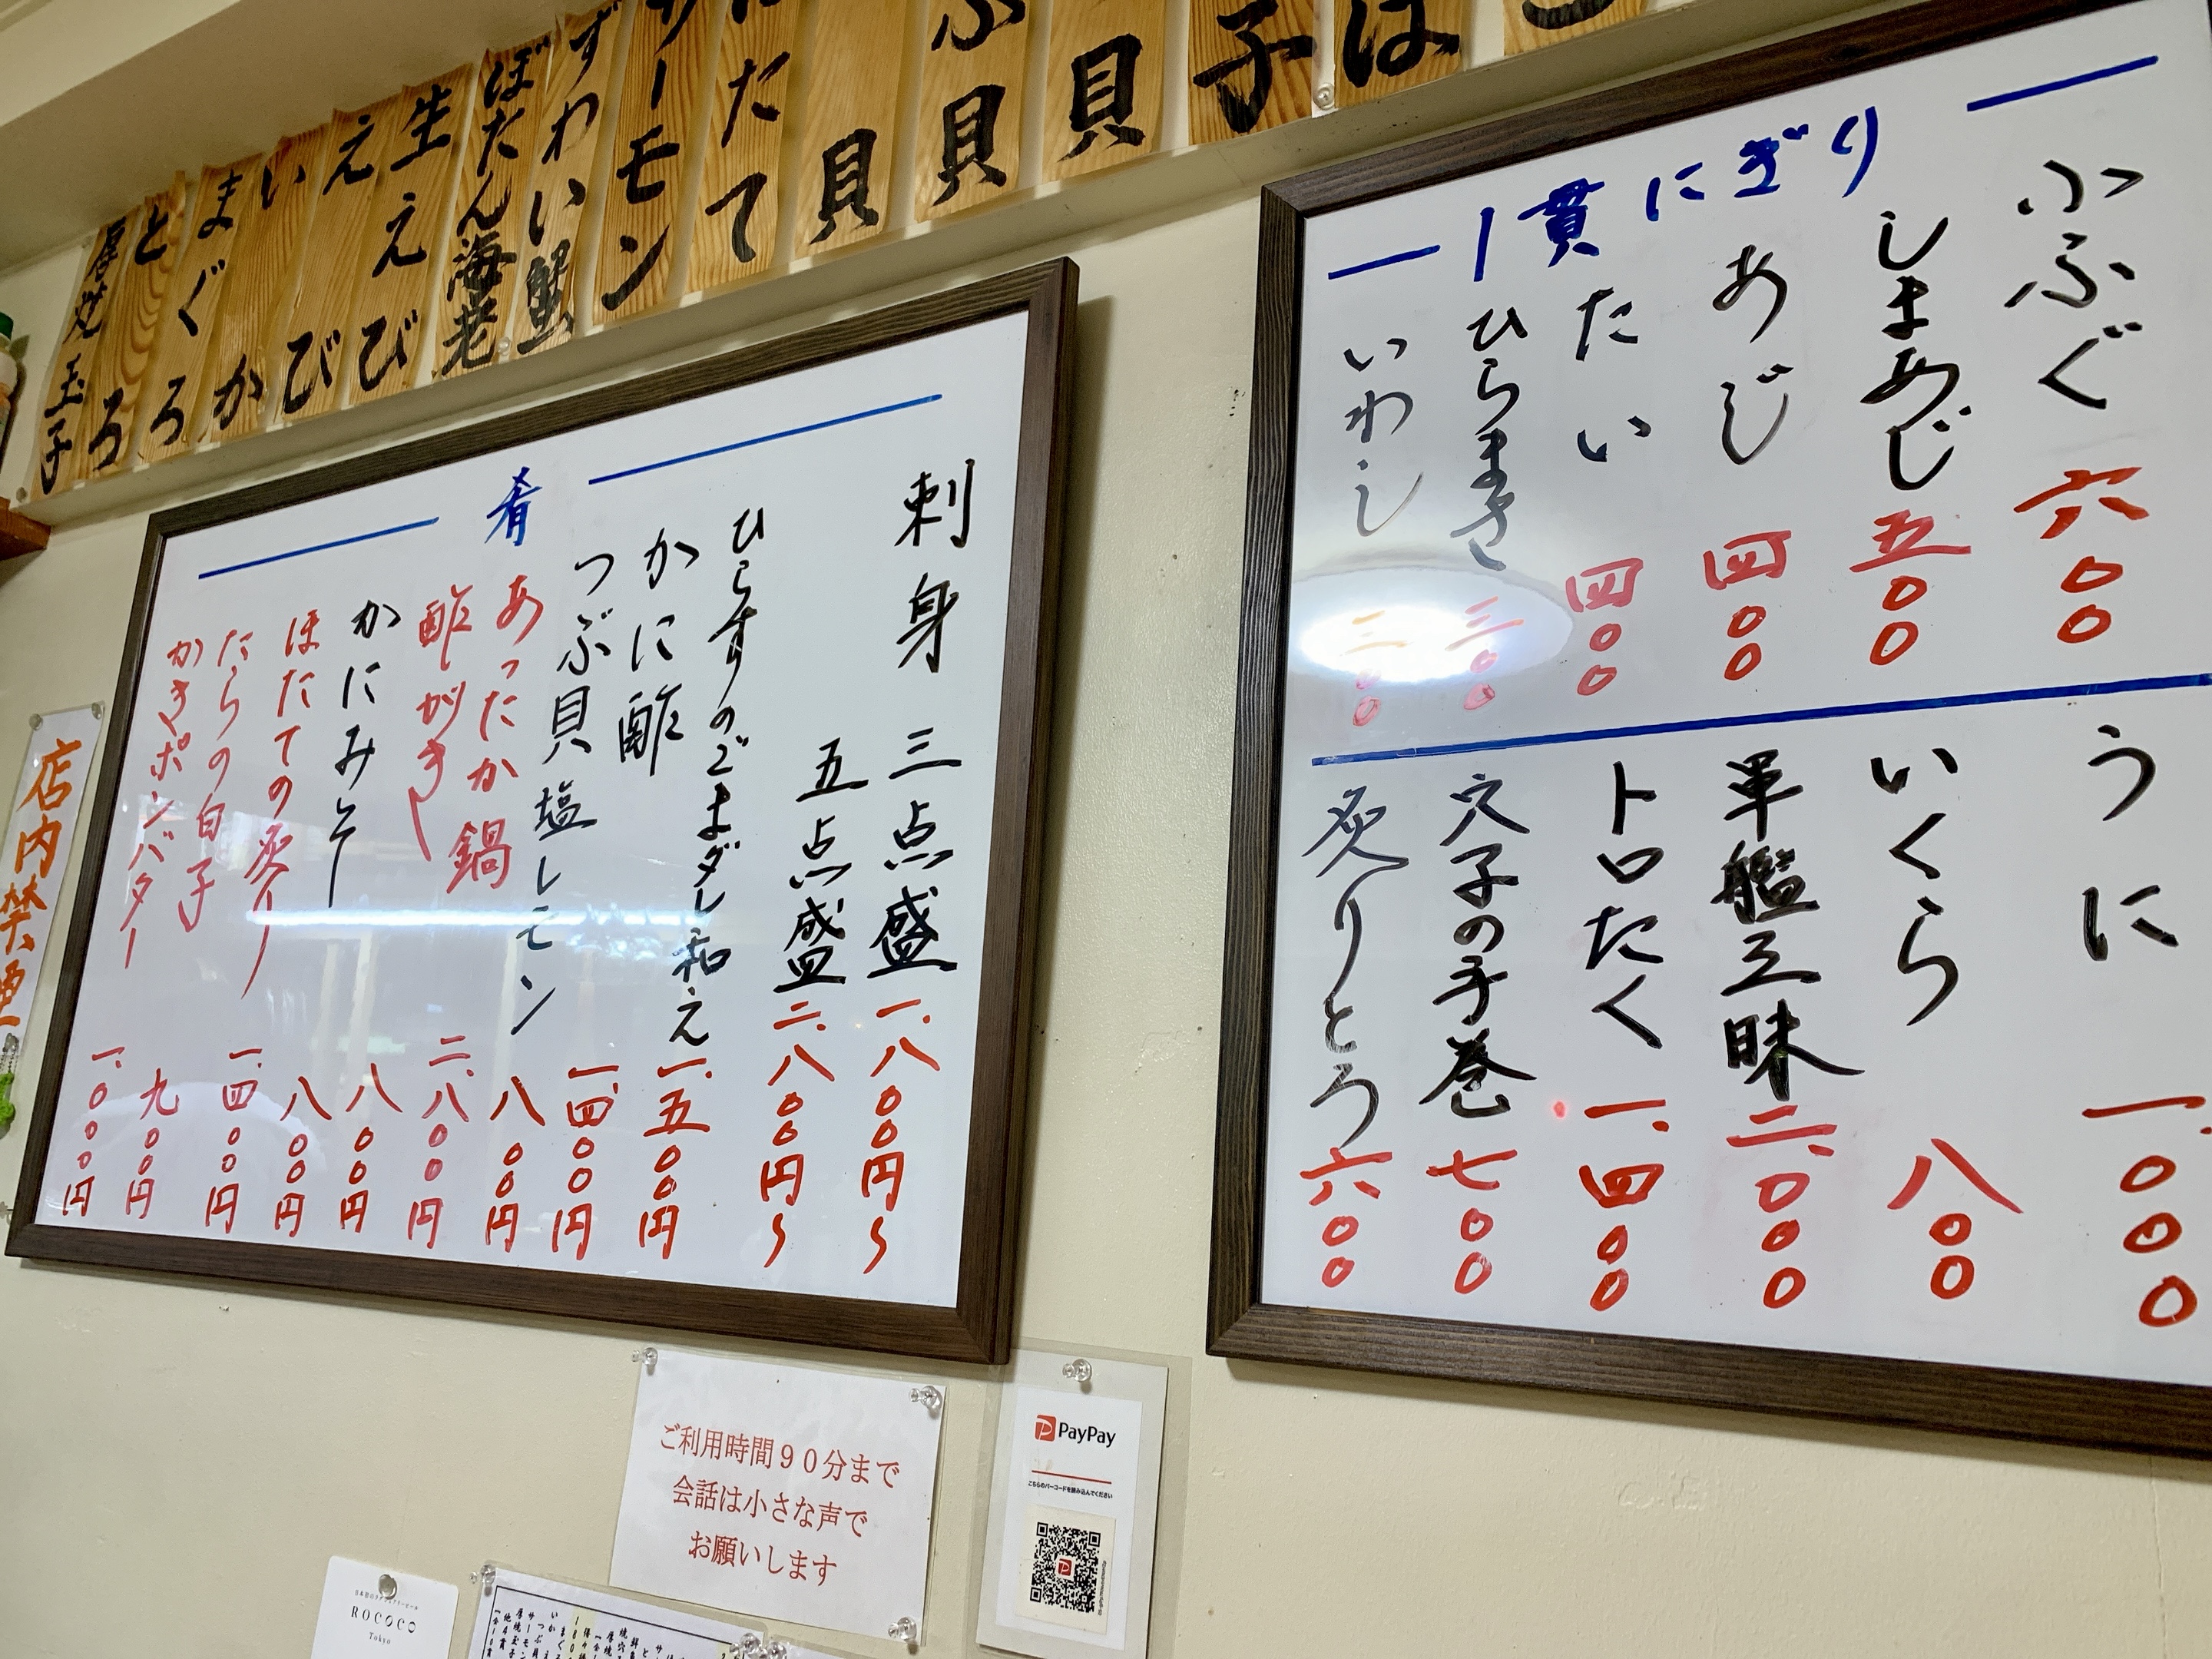 貝
貝
貝
サーモン
ずわい蟹
ぼたん海老
生えび
えび
いか
まぐろ
とろ
厚焼玉子
一貫にぎり
ふぐ 六〇〇
しまあじ 五〇〇
あじ 四〇〇
たい 四〇〇
ひらまさ 三〇〇
いわし 三〇〇
うに 一〇〇〇
いくら 八〇〇
軍艦三昧 二、〇〇〇
トロたく 一、四〇〇
穴子の手巻 七〇〇
炙りとろ 六〇〇
刺身 三点盛 一、八〇〇円〜
五点盛 二、八〇〇円〜
ひらすのごまダレ和え 一、五〇〇円
かに酢 一、四〇〇円
つぶ貝塩レモン 八〇〇円
肴
あったか鍋 二、八〇〇円
酢がき 八〇〇円
かにみそ 八〇〇円
ほたての炙り 一、四〇〇円
たらの白子 九〇〇円
かきポンバター 一、〇〇〇円
店内禁煙
ご利用時間９０分まで
会話は小さな声で
お願いします
PayPay
こちらのバーコードを読み込んでください
ROCOCO
Tokyo